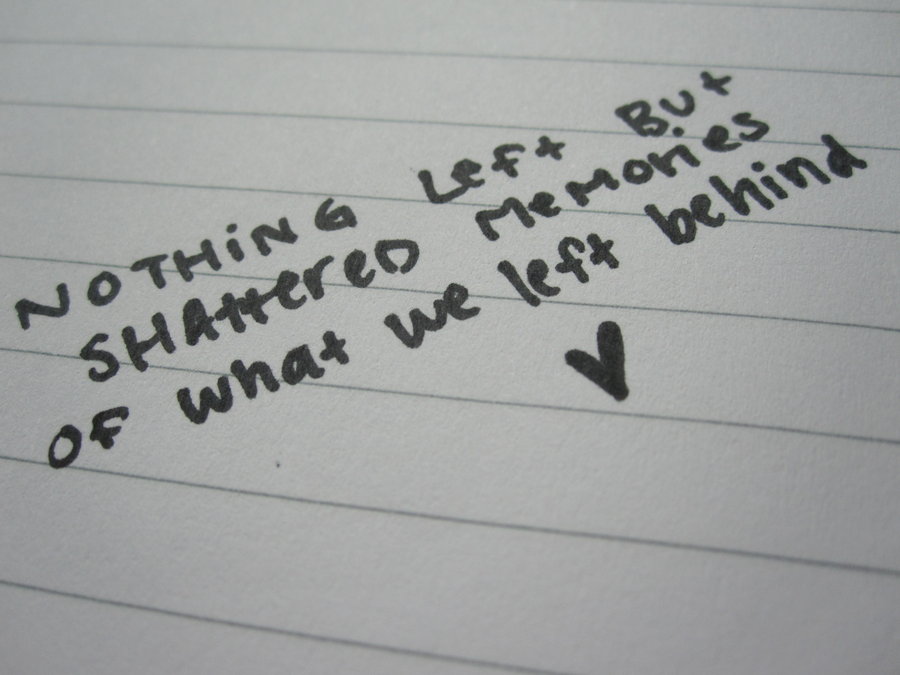 NOTHiNG Left But
SHAttereD MeMories
OF what we left behind